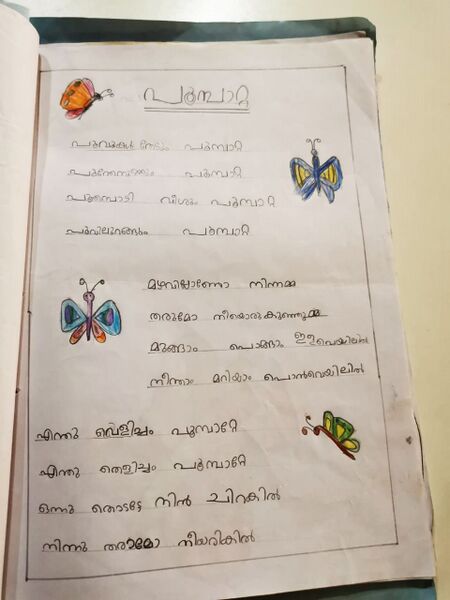 പൂമ്പാറ്റ
പൂവുകൾ തേടും പൂമ്പാറ്റ
പൂന്തേനുണ്ണും പൂമ്പാറ്റ
പൂമ്പൊടി വീശും പൂമ്പാറ്റ
പൂവിലുറങ്ങും പൂമ്പാറ്റ
മഴവില്ലാണോ നിന്നമ്മ
തരുമോ നീയൊരുകുഞ്ഞുമ്മ
മുങ്ങാം പൊങ്ങാം ഈ വെയിലിൽ
നീന്താം മറിയാം പൊൻവെയിലിൽ
എന്തു വെളിച്ചം പൂമ്പാറ്റേ
എന്തു തെളിച്ചം പൂമ്പാറ്റേ
ഒന്നു തൊടട്ടേ നിൻ ചിറകിൽ
നിന്നു തരാമോ നീയരികിൽ